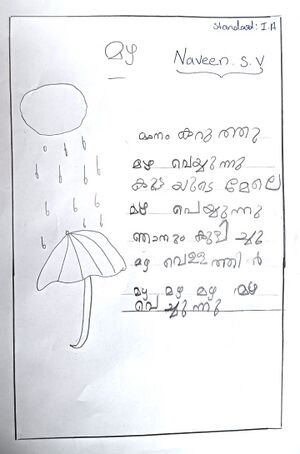 Standard: I.A
മഴ
Naveen. S. V
മാനം കറുത്തു
മഴ പെയ്യുന്നു
കുട യുടെ മേലെ
മഴ പെയ്യുന്നു
ഞാനും കുളി ച്ചു
മഴ വെള്ളത്തി ൽ
മഴ മഴ മഴ മഴ
പെ യ്യുന്നു